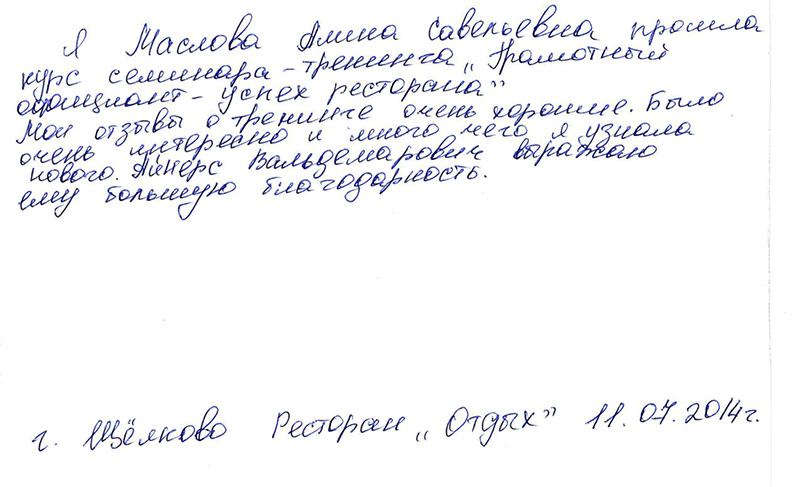 Я Маслова Алина Савельевна прошла
курс семинара-тренинга „Грамотный
официант - успех ресторана”
Мои отзывы о тренинге очень хорошие. Было
очень интересно и много чего я узнала
нового. Айнерс Вальдемарович выражаю
ему большую благодарность.
г. Щёлково Ресторан „Отдых” 11.07.2014г.